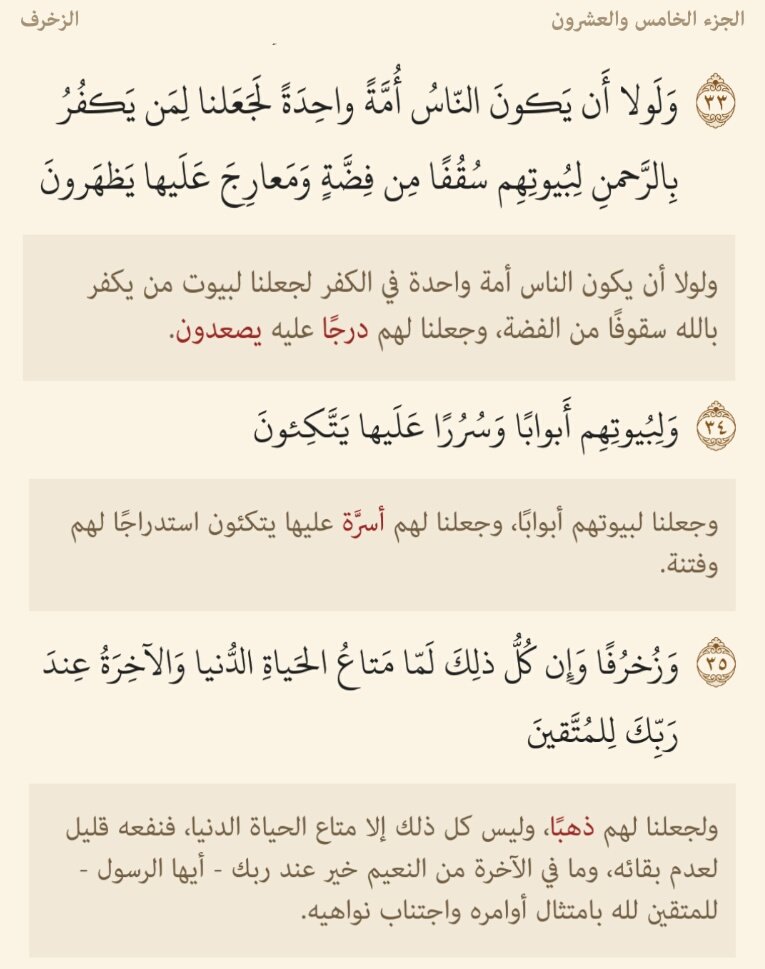 الجزء الخامس والعشرون
الزخرف
٣٣ وَلَولا أَن يَكونَ النّاسُ أُمَّةً واحِدَةً لَجَعَلنا لِمَن يَكفُرُ
بِالرَّحمنِ لِبُيوتِهِم سُقُفًا مِن فِضَّةٍ وَمَعارِجَ عَلَيها يَظهَرونَ
ولولا أن يكون الناس أمة واحدة في الكفر لجعلنا لبيوت من يكفر
بالله سقوفًا من الفضة، وجعلنا لهم درجًا عليه يصعدون.
٣٤ وَلِبُيوتِهِم أَبوابًا وَسُرُرًا عَلَيها يَتَّكِئونَ
وجعلنا لبيوتهم أبوابًا، وجعلنا لهم أسرَّة عليها يتكئون استدراجًا لهم
وفتنة.
٣٥ وَزُخرُفًا وَإِن كُلُّ ذلِكَ لَمّا مَتاعُ الحَياةِ الدُّنيا وَالآخِرَةُ عِندَ
رَبِّكَ لِلمُتَّقينَ
ولجعلنا لهم ذهبًا، وليس كل ذلك إلا متاع الحياة الدنيا، فنفعه قليل
لعدم بقائه، وما في الآخرة من النعيم خير عند ربك - أيها الرسول -
للمتقين لله بامتثال أوامره واجتناب نواهيه.